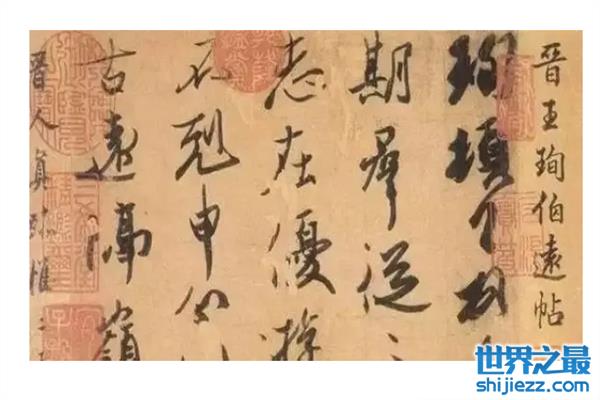 晉王珣伯遠帖
珣頓首
期羣從
志在優游
不剋申分別
古遠隔嶺
晉人真跡惟二
世界之最
shijiezz.com